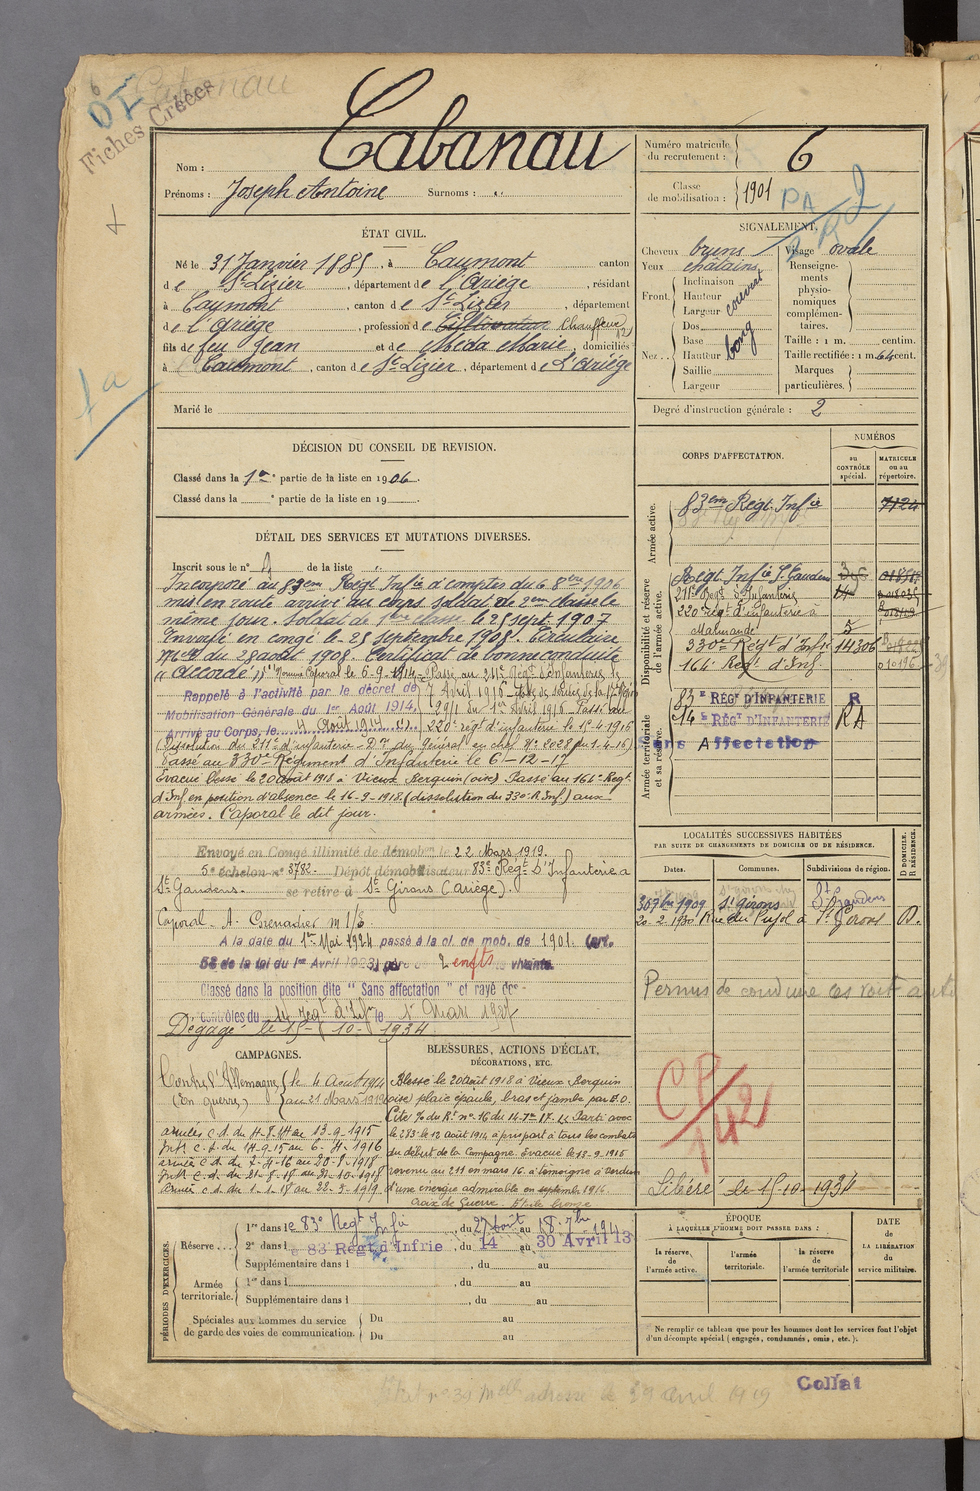 Fiches Créées
Cabanau
Nom :
Prénoms : Joseph Antoine Surnoms : "
Numéro matricule du recrutement : 6
Classe de mobilisation : 1901
ÉTAT CIVIL.
Né le 31 Janvier 1885, à Caumont canton
de St Lizier, département de l'Ariège, résidant
à Caumont, canton de St Lizier, département
de l'Ariège, profession de Cultivateur Chauffeur
fils de feu Jean et de Méda Marie, domiciliés
à Caumont, canton de St Lizier, département de L'Ariège
Marié le
SIGNALEMENT.
Cheveux bruns
Yeux châtains
Front. Inclinaison
Hauteur couvert
Largeur
Nez .. Dos
Base
Hauteur long
Saillie
Largeur
Visage ovale
Renseignements physionomiques complémentaires.
Taille : 1 m. centim.
Taille rectifiée : 1 m. 64 cent.
Marques particulières.
Degré d'instruction générale : 2
DÉCISION DU CONSEIL DE REVISION.
Classé dans la 1re partie de la liste en 1906.
Classé dans la e partie de la liste en 19
DÉTAIL DES SERVICES ET MUTATIONS DIVERSES.
Inscrit sous le n° 4 de la liste "
Incorporé au 83em Régt Infie à compter du 6 8bre 1906
mis en route arrivé au corps soldat de 2em classe le
même jour. Soldat de 1ère classe le 25 sept. 1907
Envoyé en congé le 25 septembre 1908. Circulaire
du 28 août 1908. Certificat de bonne conduite
"accordé". Nommé Caporal le 6-9-1914 Passé au 211e Régt d'Infanterie le
Rappelé à l'activité par le décret de 7 Avril 1916
Mobilisation Générale du 1er Août 1914. du 1er Avril 1916 Passé au
Arrivé au Corps, le 4 Août 1914 220e régt d'infanterie le 15-4-1916
(Dissolution du 211e d'infanterie - Don du Général en chef No 2028 du 1-4-16)
Passé au 330e Régiment d'Infanterie le 6-12-17
Evacué blessé le 20 août 1918 à Vieux Berquin (oise) Passé au 164e Régt
d'Inf en position d'absence le 16-9-1918 (dissolution du 330e R. Inf) aux
armées. Caporal le dit jour.
Envoyé en Congé illimité de démobon le 22 Mars 1919.
5e échelon n° 3782. Dépôt démobilisateur 83e Régt D'Infanterie à
St Gaudens. se retire à St Girons (Ariège).
Caporal - A. Grenadier
A la date du 1er Mai 1924 passé à la cl. de mob. de 1901. (art.
58 de la loi du 1er Avril 1923) père de 2 enfts vivants.
Classé dans la position dite "Sans affectation" et rayé des
contrôles du 14 régt d'Infie le 1er Mars 1927
Dégagé le 15-10-1934
CORPS D'AFFECTATION.
NUMÉROS
au CONTRÔLE spécial.
MATRICULE ou au répertoire.
Armée active.
83em Régt Infie 7124
Disponibilité et réserve de l'armée active.
Régt Infie St Gaudens
211e Régt d'Infanterie
220 régt d'infanterie à
Marmande 5
330e Régt d'Infie 14306
164e Régt d'Inf. 010196
Armée territoriale et sa réserve.
83 E RÉGT D'INFANTERIE R
14 E RÉGT D'INFANTERIE RA
Sans Affectation
LOCALITÉS SUCCESSIVES HABITÉES
PAR SUITE DE CHANGEMENTS DE DOMICILE OU DE RÉSIDENCE.
Dates. Communes. Subdivisions de région. D DOMICILE. R RÉSIDENCE.
30 7bre 1909 St Girons St Gaudens
20-2-1930 Rue du Pujol à St Girons D.
Permis de conduire les voit auto
CP/142
Libéré le 15-10-1934
CAMPAGNES.
Contre l'Allemagne (le 4 Août 1914
(En guerre) au 21 Mars 1919
armées c. d. du 4-8-14 au 13-9-1915
Int c. d. du 14-9-15 au 6-4-1916
armées c. d. du 7-4-16 au 20-8-1918
Int c. d. du 21-8-18 au 31-10-1918
Armées c. d. du 1-1-18 au 22-3-1919
BLESSURES, ACTIONS D'ÉCLAT,
DÉCORATIONS, ETC.
Blessé le 20 août 1918 à Vieux Berquin
(oise) plaie épaule, bras et jambe par E.O.
Cité % du Rt no 16 du 14-7-17. "Parti avec
le 283e le 12 août 1914 a pris part à tous les combats
du début de la Campagne. Evacué le 13-9-1915
revenu au 211 en mars 16. a témoigné à Verdun
d'une énergie admirable en septembre 1916.
Croix de Guerre. Etoile bronze
PÉRIODES D'EXERCICES.
Réserve
1re dans le 83e Régt Infie, du 27 août au 18 7bre 1911
2e dans le 83 Régt d'Infrie, du 14 au 30 Avril 13
Supplémentaire dans l , du au
Armée territoriale.
1re dans l , du au
Supplémentaire dans l , du au
Spéciales aux hommes du service de garde des voies de communication.
Du au
Du au
ÉPOQUE
À LAQUELLE L'HOMME DOIT PASSER DANS :
la réserve de l'armée active.
l'armée territoriale.
la réserve de l'armée territoriale
DATE de LA LIBÉRATION du service militaire.
Ne remplir ce tableau que pour les hommes dont les services font l'objet
d'un décompte spécial (engagés, condamnés, omis, etc.).
Collat